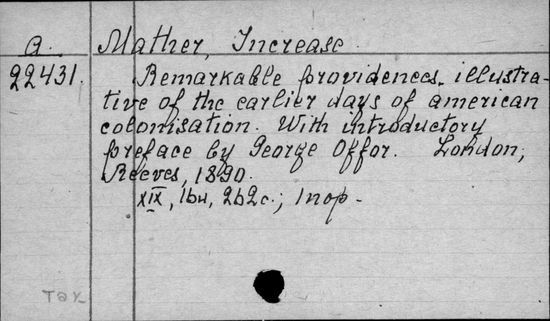 A. Mather, Increase
22431. Remarkable providences illustra-
tive of the earlier days of american
colonisation. With introductory
preface by George Offor. London,
Reeves, 1890.
XIX, 1bu, 262c.; 1nop.